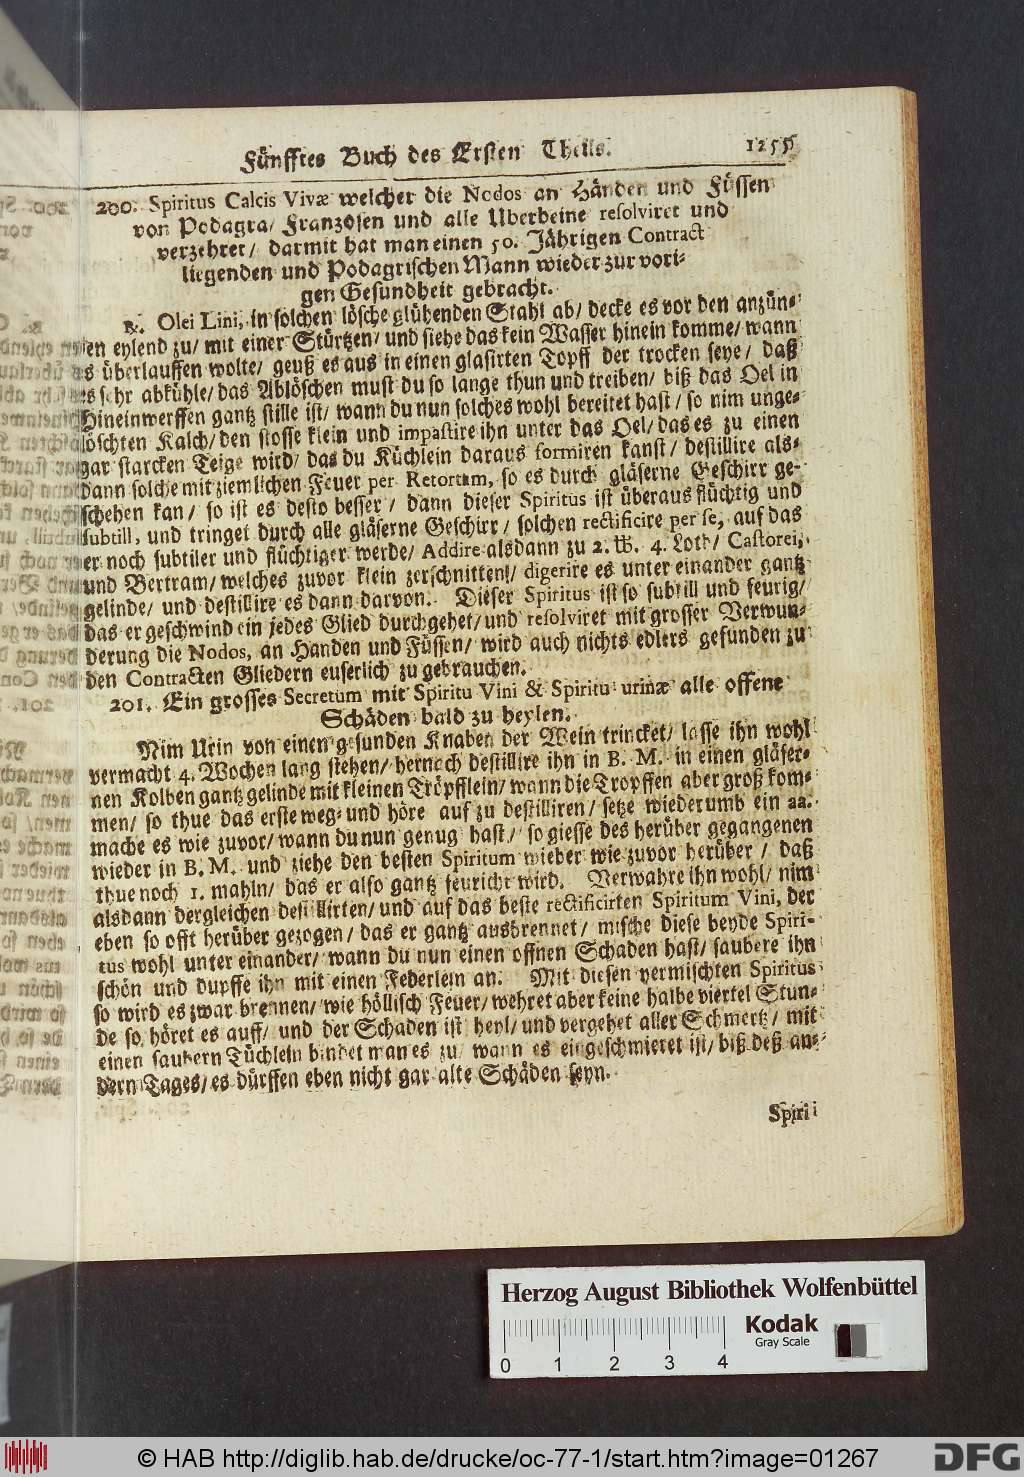 Fünfftes Buch des Ersten Theils. 1255
200. Spiritus Calcis Vivæ welcher die Nodos an Händen und Füssen
von Podagra/ Franzosen und alle Uberbeine resolviret und
verzehret/ darmit hat man einen 50. Jährigen Contract
liegenden und Podagrischen Mann wieder zur vori-
gen Gesundheit gebracht.
℞. Olei Lini, in solchen lösche glühenden Stahl ab/ decke es vor den anzün-
en eylend zu/ mit einer Stürtzen/ und siehe das kein Wasser hinein komme/ wann
s überlauffen wolte/ geuß es aus in einen glasirten Topff der trocken seye/ daß
es sehr abkühle/ das Ablöschen must du so lange thun und treiben/ biß das Oel in
Hineinwerffen gantz stille ist/ wann du nun solches wohl bereitet hast/ so nim unge-
löschten Kalch/ den stosse klein und impastire ihn unter das Oel/ das es zu einen
gar starcken Teige wird/ das du Küchlein daraus formiren kanst/ destillire als-
dann solche mit ziemlichen Feuer per Retortam, so es durch gläserne Geschirr ge-
schehen kan/ so ist es desto besser/ dann dieser Spiritus ist überaus flüchtig und
subtill, und tringet durch alle gläserne Geschirr/ solchen rectificire per se, auf das
er noch subtiler und flüchtiger werde/ Addire alsdann zu 2. ℔. 4. Loth/ Castorei,
und Bertram/ welches zuvor klein zerschnitten/ digerire es unter einander gantz
gelinde/ und destillire es dann darvon. Dieser Spiritus ist so subtill und feurig/
das er geschwind ein jedes Glied durchgehet/ und resolviret mit grosser Verwun-
derung die Nodos, an Handen und Füssen/ wird auch nichts edlers gefunden zu
den Contracten Gliedern euserlich zu gebrauchen.
201. Ein grosses Secretum mit Spiritu Vini & Spiritu urinæ alle offene
Schäden bald zu heylen.
Nim Urin von einen gesunden Knaben der Wein trincket/ lasse ihn wohl
vermacht 4. Wochen lang stehen/ hernach destillire ihn in B. M. in einen gläser-
nen Kolben gantz gelinde mit kleinen Tröpfflein/ wann die Tropffen aber groß kom-
men/ so thue das erste weg- und höre auf zu destilliren/ setze wiederumb ein aa.
mache es wie zuvor/ wann du nun genug hast/ so giesse des herüber gegangenen
wieder in B. M. und ziehe den besten Spiritum wieder wie zuvor herüber/ daß
thue noch 1. mahln/ das er also gantz feuricht wird. Verwahre ihn wohl/ nim
alsdann dergleichen destillirten/ und auf das beste rectificirten Spiritum Vini, der
eben so offt herüber gezogen/ das er gantz ausbrennet/ mische diese beyde Spiri-
tus wohl unter einander/ wann du nun einen offnen Schaden hast/ saubere ihn
schön und dupffe ihn mit einen Federlein an. Mit diesen vermischten Spiritus
so wird es zwar brennen/ wie höllisch Feuer/ wehret aber keine halbe viertel Stun-
de so höret es auff/ und der Schaden ist heyl/ und vergehet aller Schmertz/ mit
einen saubern Tüchlein bindet man es zu/ wann es eingeschmieret ist/ biß deß an-
dern Tages/ es dürffen eben nicht gar alte Schäden seyn.
Spiri
Herzog August Bibliothek Wolfenbüttel
Kodak
Gray Scale
0 1 2 3 4
© HAB http://diglib.hab.de/drucke/oc-77-1/start.htm?image=01267
DFG